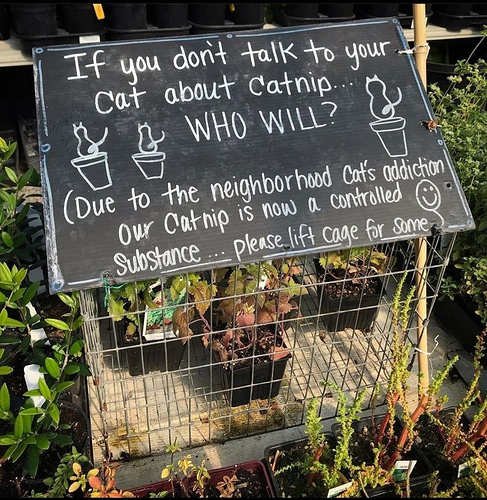 If you don't talk to your
cat about catnip...
WHO WILL?
(Due to the neighborhood cat's addiction
our catnip is now a controlled
substance... please lift cage for some